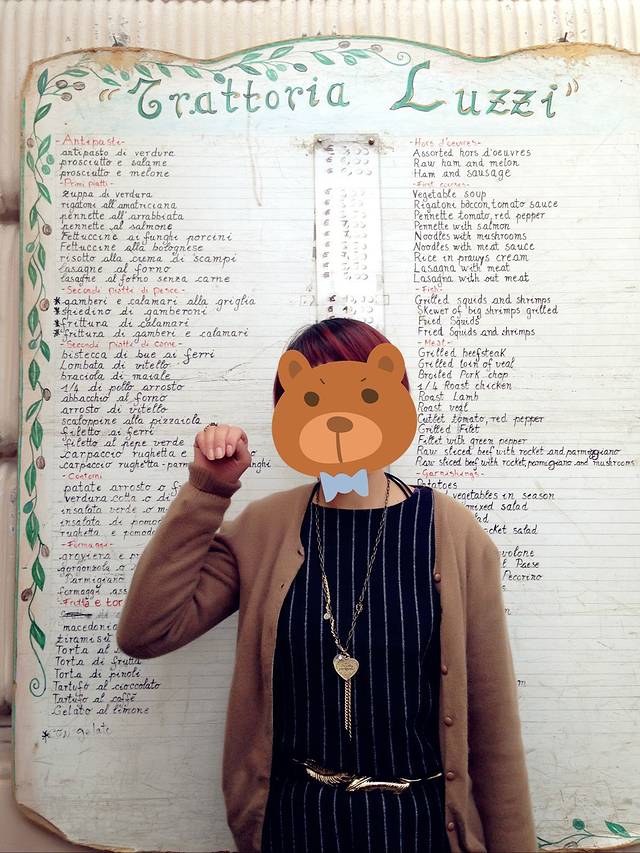 "Trattoria Luzzi"
-Antipasti-
antipasto di verdura
prosciutto e salame
prosciutto e melone
-Primi piatti-
zuppa di verdura
rigatoni all'amatriciana
pennette all'arrabbiata
pennette al salmone
Fettuccine ai funghi porcini
Fettuccine alla bolognese
risotto alla crema di scampi
lasagne al forno
lasagne al forno senza carne
-Secondi piatti di pesce-
*gamberi e calamari alla griglia
*spiedino di gamberoni
*frittura di calamari
*frittura di gamberi e calamari
-Secondi piatti di carne-
bistecca di bue ai ferri
Lombata di vitello
braciola di maiale
1/4 di pollo arrosto
abbacchio al forno
arrosto di vitello
scaloppine alla pizzaiola
filetto ai ferri
filetto al pepe verde
carpaccio rughetta e
carpaccio rughetta-parm nghi
-Contorni
patate arrosto o f
verdura cotta o di
insalata verde o m
insalata di pomod
rughetta e pomodo
-Formaggi-
groviera e pr
gorgonzola o
Parmigiano
formaggi ass
Frutta e tor
macedoni
tiramisù
Torta al
Torta di frutta
Torta di pinoli
Tartufo al cioccolato
Tartufo al caffè
Gelato al limone
gelate
-Hors d'oeuvres-
Assorted hors d'oeuvres
Raw ham and melon
Ham and sausage
-First courses-
Vegetable soup
Rigatoni bacon, tomato sauce
Pennette tomato, red pepper
Pennette with salmon
Noodles with mushrooms
Noodles with meat sauce
Rice in prawys cream
Lasagna with meat
Lasagna with out meat
-Fish-
Grilled squids and shrimps
Skewer of big shrimps grilled
Fried Squids
Fried Squids and shrimps
-Meat-
Grilled beefsteak
Grilled loin of veal
Broiled Pork chop
1/4 Roast chicken
Roast Lamb
Roast veal
Cutlet tomato, red pepper
Grilled Filet
Fillet with green pepper
Raw sliced beef with rocket and parmiggiano
Raw sliced beef with rocket, parmigiano and mushrooms
-Garnishings-
Potatoes
vegetables in season
salad
lad
ocket salad
volone
Paese
Pecorino